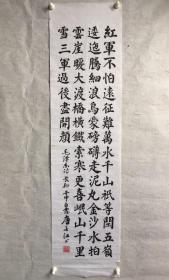 紅軍不怕遠征難萬水千山祇等閑五嶺
逶迤騰細浪烏蒙磅礴走泥丸金沙水拍
雲崖暖大渡橋橫鐵索寒更喜岷山千里
雪三軍過後盡開顏
毛澤東詩長征